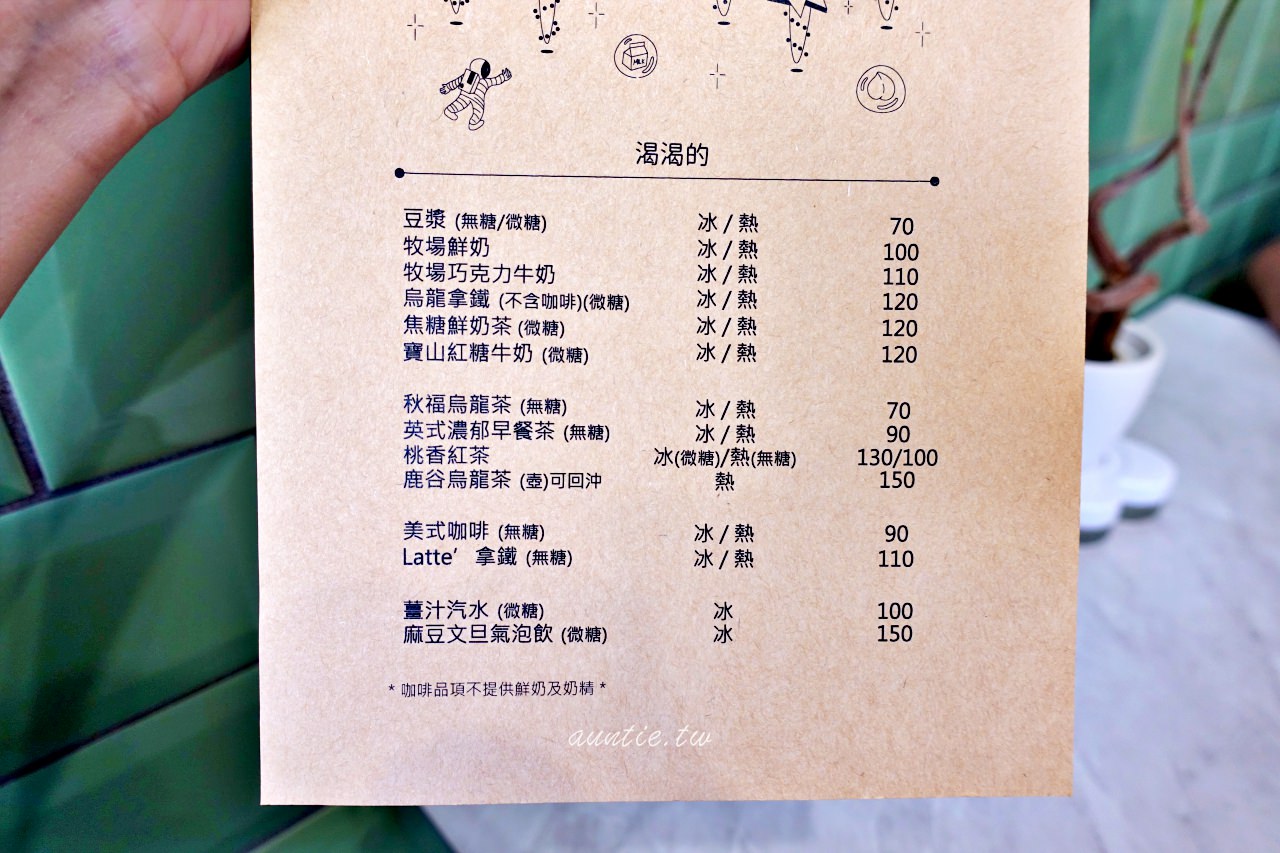 MILK
渴渴的
豆漿 (無糖/微糖) 冰 / 熱 70
牧場鮮奶 冰 / 熱 100
牧場巧克力牛奶 冰 / 熱 110
烏龍拿鐵 (不含咖啡)(微糖) 冰 / 熱 120
焦糖鮮奶茶 (微糖) 冰 / 熱 120
寶山紅糖牛奶 (微糖) 冰 / 熱 120
秋福烏龍茶 (無糖) 冰 / 熱 70
英式濃郁早餐茶 (無糖) 冰 / 熱 90
桃香紅茶 冰(微糖)/熱(無糖) 130/100
鹿谷烏龍茶 (壺)可回沖 熱 150
美式咖啡 (無糖) 冰 / 熱 90
Latte’ 拿鐵 (無糖) 冰 / 熱 110
薑汁汽水 (微糖) 冰 100
麻豆文旦氣泡飲 (微糖) 冰 150
* 咖啡品項不提供鮮奶及奶精 *
auntie.tw